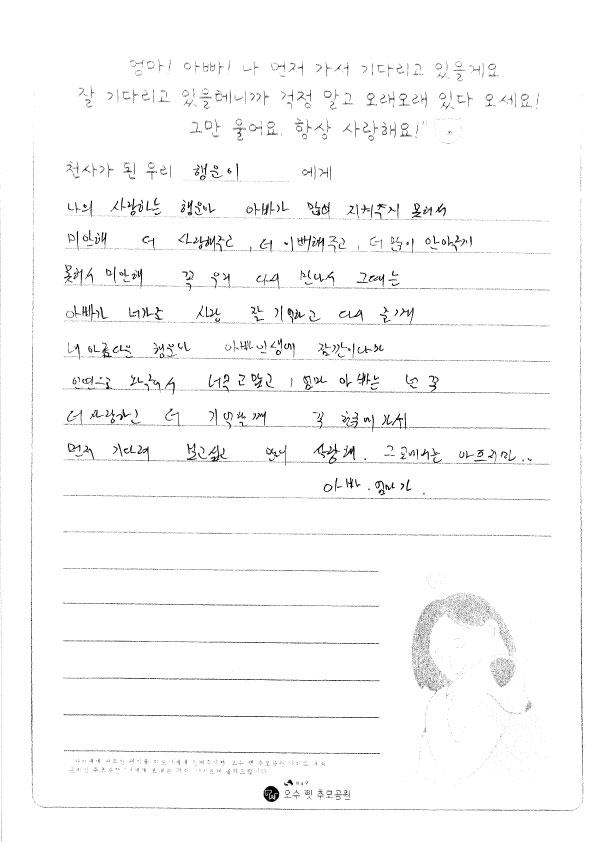 엄마! 아빠! 나 먼저 가서 기다리고 있을게요.
잘 기다리고 있을테니까 걱정 말고 오래오래 있다 오세요!
그만 울어요. 항상 사랑해요!"
천사가 된 우리 행운이 에게
나의 사랑하는 행운아 아빠가 지켜주지 못해서
미안해 더 사랑해주고, 더 이뻐해주고, 더 많이 안아주지
못해서 미안해 꼭 우리 다시 만나서 그때는
아빠가 사람 잘 기억하고 다시 올게
너 아름다운 행운아 아빠인생에 잠깐이나마
인연으로 와줘서 너무 고맙고, 엄마 아빠는 넌 꼭
더 사랑하고 더 기억할께 꼭 천국에 가서
먼저 기다려 보고싶고 사랑해. 그곳에서는 아프지마..
아빠. 엄마가.
오수 펫 추모공원